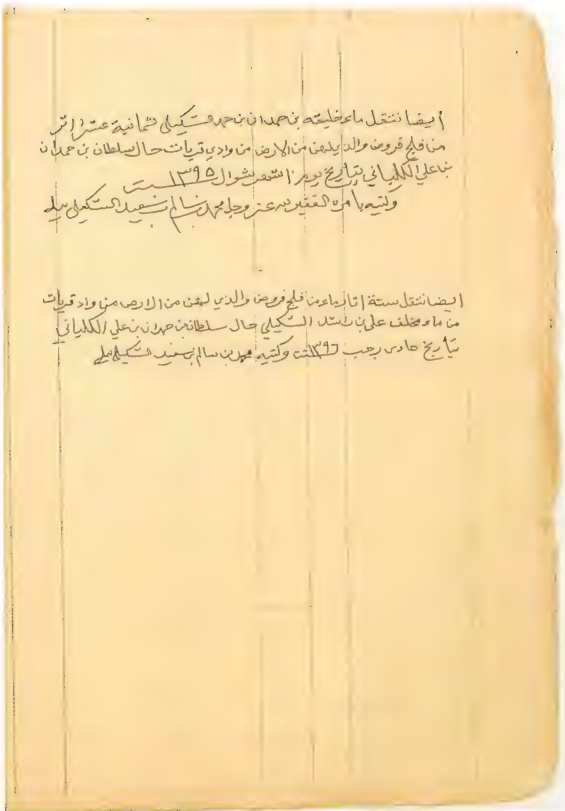 أيضا انتقل ماء خليفه بن حمدان بن حمد الشكيلي ثمانية عشر اثر
من فلج فروض والذي لهن من الارض من وادي قريات حال سلطان بن حمدان
بن علي الكلباني بتاريخ يوم ١٠ شهر شوال ١٣٩٥ سنة
وكتبه بأمره الفقير لله عز وجل محمد بن سالم بن سعيد الشكيلي بيده
ايضا انتقل ستة اثار ماء من فلج فروض والذي لهن من الارض من واد قريات
من ماء مخلف علي بن راشد الشكيلي حال سلطان بن حمدان بن علي الكلباني
بتأريخ حادى رجب ١٣٩٦ سنة وكتبه محمد بن سالم بن سعيد الشكيلي بيده